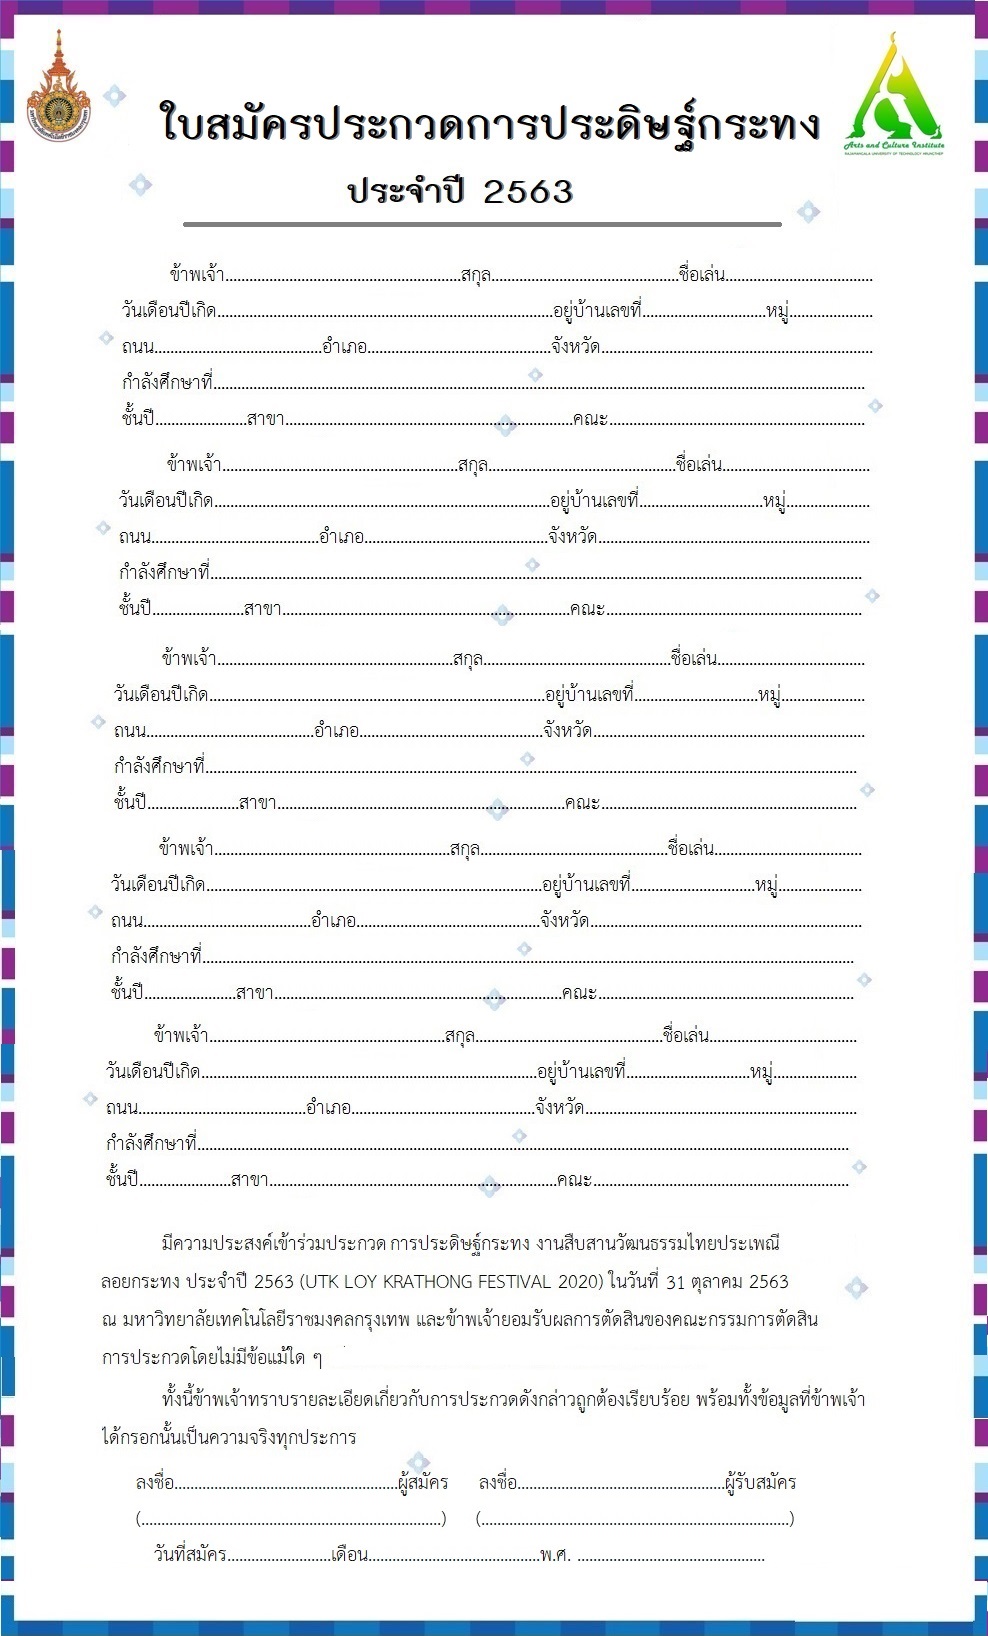 ใบสมัครประกวดการประดิษฐ์กระทง
Arts and Culture Institute
RAJAMANGALA UNIVERSITY OF TECHNOLOGY KRUNGTHEP
ประจำปี 2563
ข้าพเจ้า..........สกุล..........ชื่อเล่น..........
วันเดือนปีเกิด..........อยู่บ้านเลขที่..........หมู่..........
ถนน..........อำเภอ..........จังหวัด..........
กำลังศึกษาที่..........
ชั้นปี..........สาขา..........คณะ..........
ข้าพเจ้า..........สกุล..........ชื่อเล่น..........
วันเดือนปีเกิด..........อยู่บ้านเลขที่..........หมู่..........
ถนน..........อำเภอ..........จังหวัด..........
กำลังศึกษาที่..........
ชั้นปี..........สาขา..........คณะ..........
ข้าพเจ้า..........สกุล..........ชื่อเล่น..........
วันเดือนปีเกิด..........อยู่บ้านเลขที่..........หมู่..........
ถนน..........อำเภอ..........จังหวัด..........
กำลังศึกษาที่..........
ชั้นปี..........สาขา..........คณะ..........
ข้าพเจ้า..........สกุล..........ชื่อเล่น..........
วันเดือนปีเกิด..........อยู่บ้านเลขที่..........หมู่..........
ถนน..........อำเภอ..........จังหวัด..........
กำลังศึกษาที่..........
ชั้นปี..........สาขา..........คณะ..........
ข้าพเจ้า..........สกุล..........ชื่อเล่น..........
วันเดือนปีเกิด..........อยู่บ้านเลขที่..........หมู่..........
ถนน..........อำเภอ..........จังหวัด..........
กำลังศึกษาที่..........
ชั้นปี..........สาขา..........คณะ..........
มีความประสงค์เข้าร่วมประกวด การประดิษฐ์กระทง งานสืบสานวัฒนธรรมไทยประเพณี
ลอยกระทง ประจำปี 2563 (UTK LOY KRATHONG FESTIVAL 2020) ในวันที่ 31 ตุลาคม 2563
ณ มหาวิทยาลัยเทคโนโลยีราชมงคลกรุงเทพ และข้าพเจ้ายอมรับผลการตัดสินของคณะกรรมการตัดสิน
การประกวดโดยไม่มีข้อแม้ใด ๆ
ทั้งนี้ข้าพเจ้าทราบรายละเอียดเกี่ยวกับการประกวดดังกล่าวถูกต้องเรียบร้อย พร้อมทั้งข้อมูลที่ข้าพเจ้า
ได้กรอกนั้นเป็นความจริงทุกประการ
ลงชื่อ..........ผู้สมัคร ลงชื่อ..........ผู้รับสมัคร
(..........) (..........)
วันที่สมัคร..........เดือน..........พ.ศ. ..........